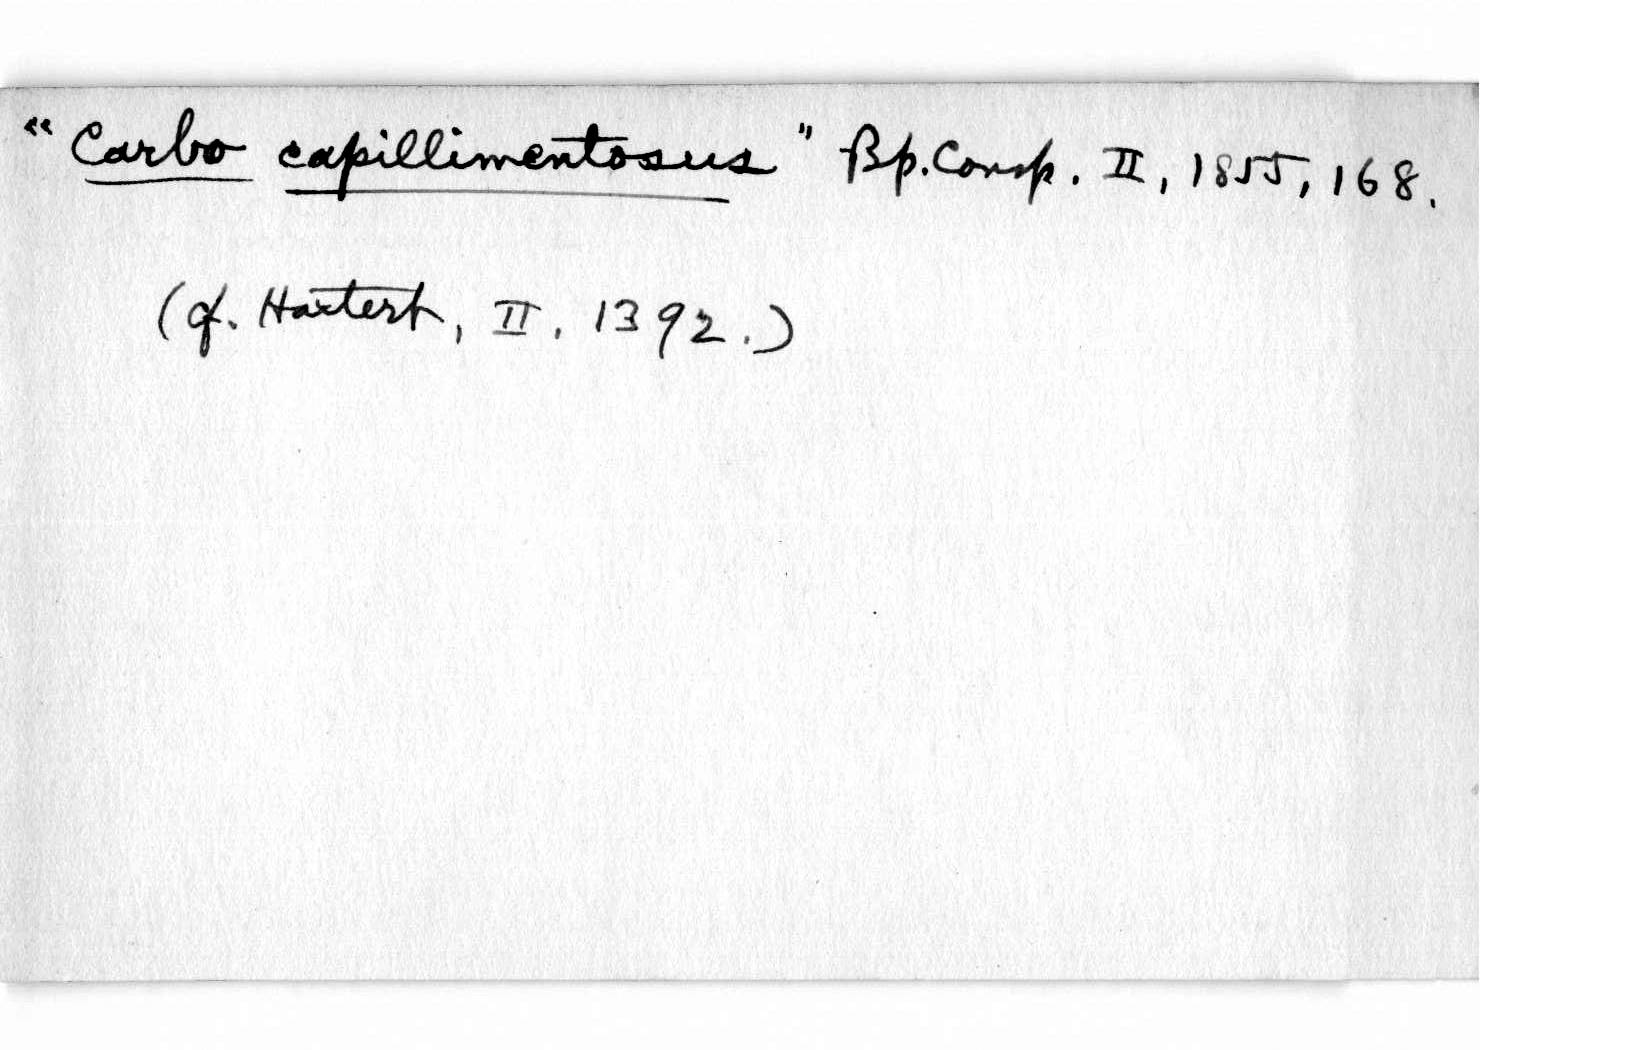 "Carbo capillimentosus" Bp. Consp. II, 1855, 168.
(cf. Hartert, II. 1392.)